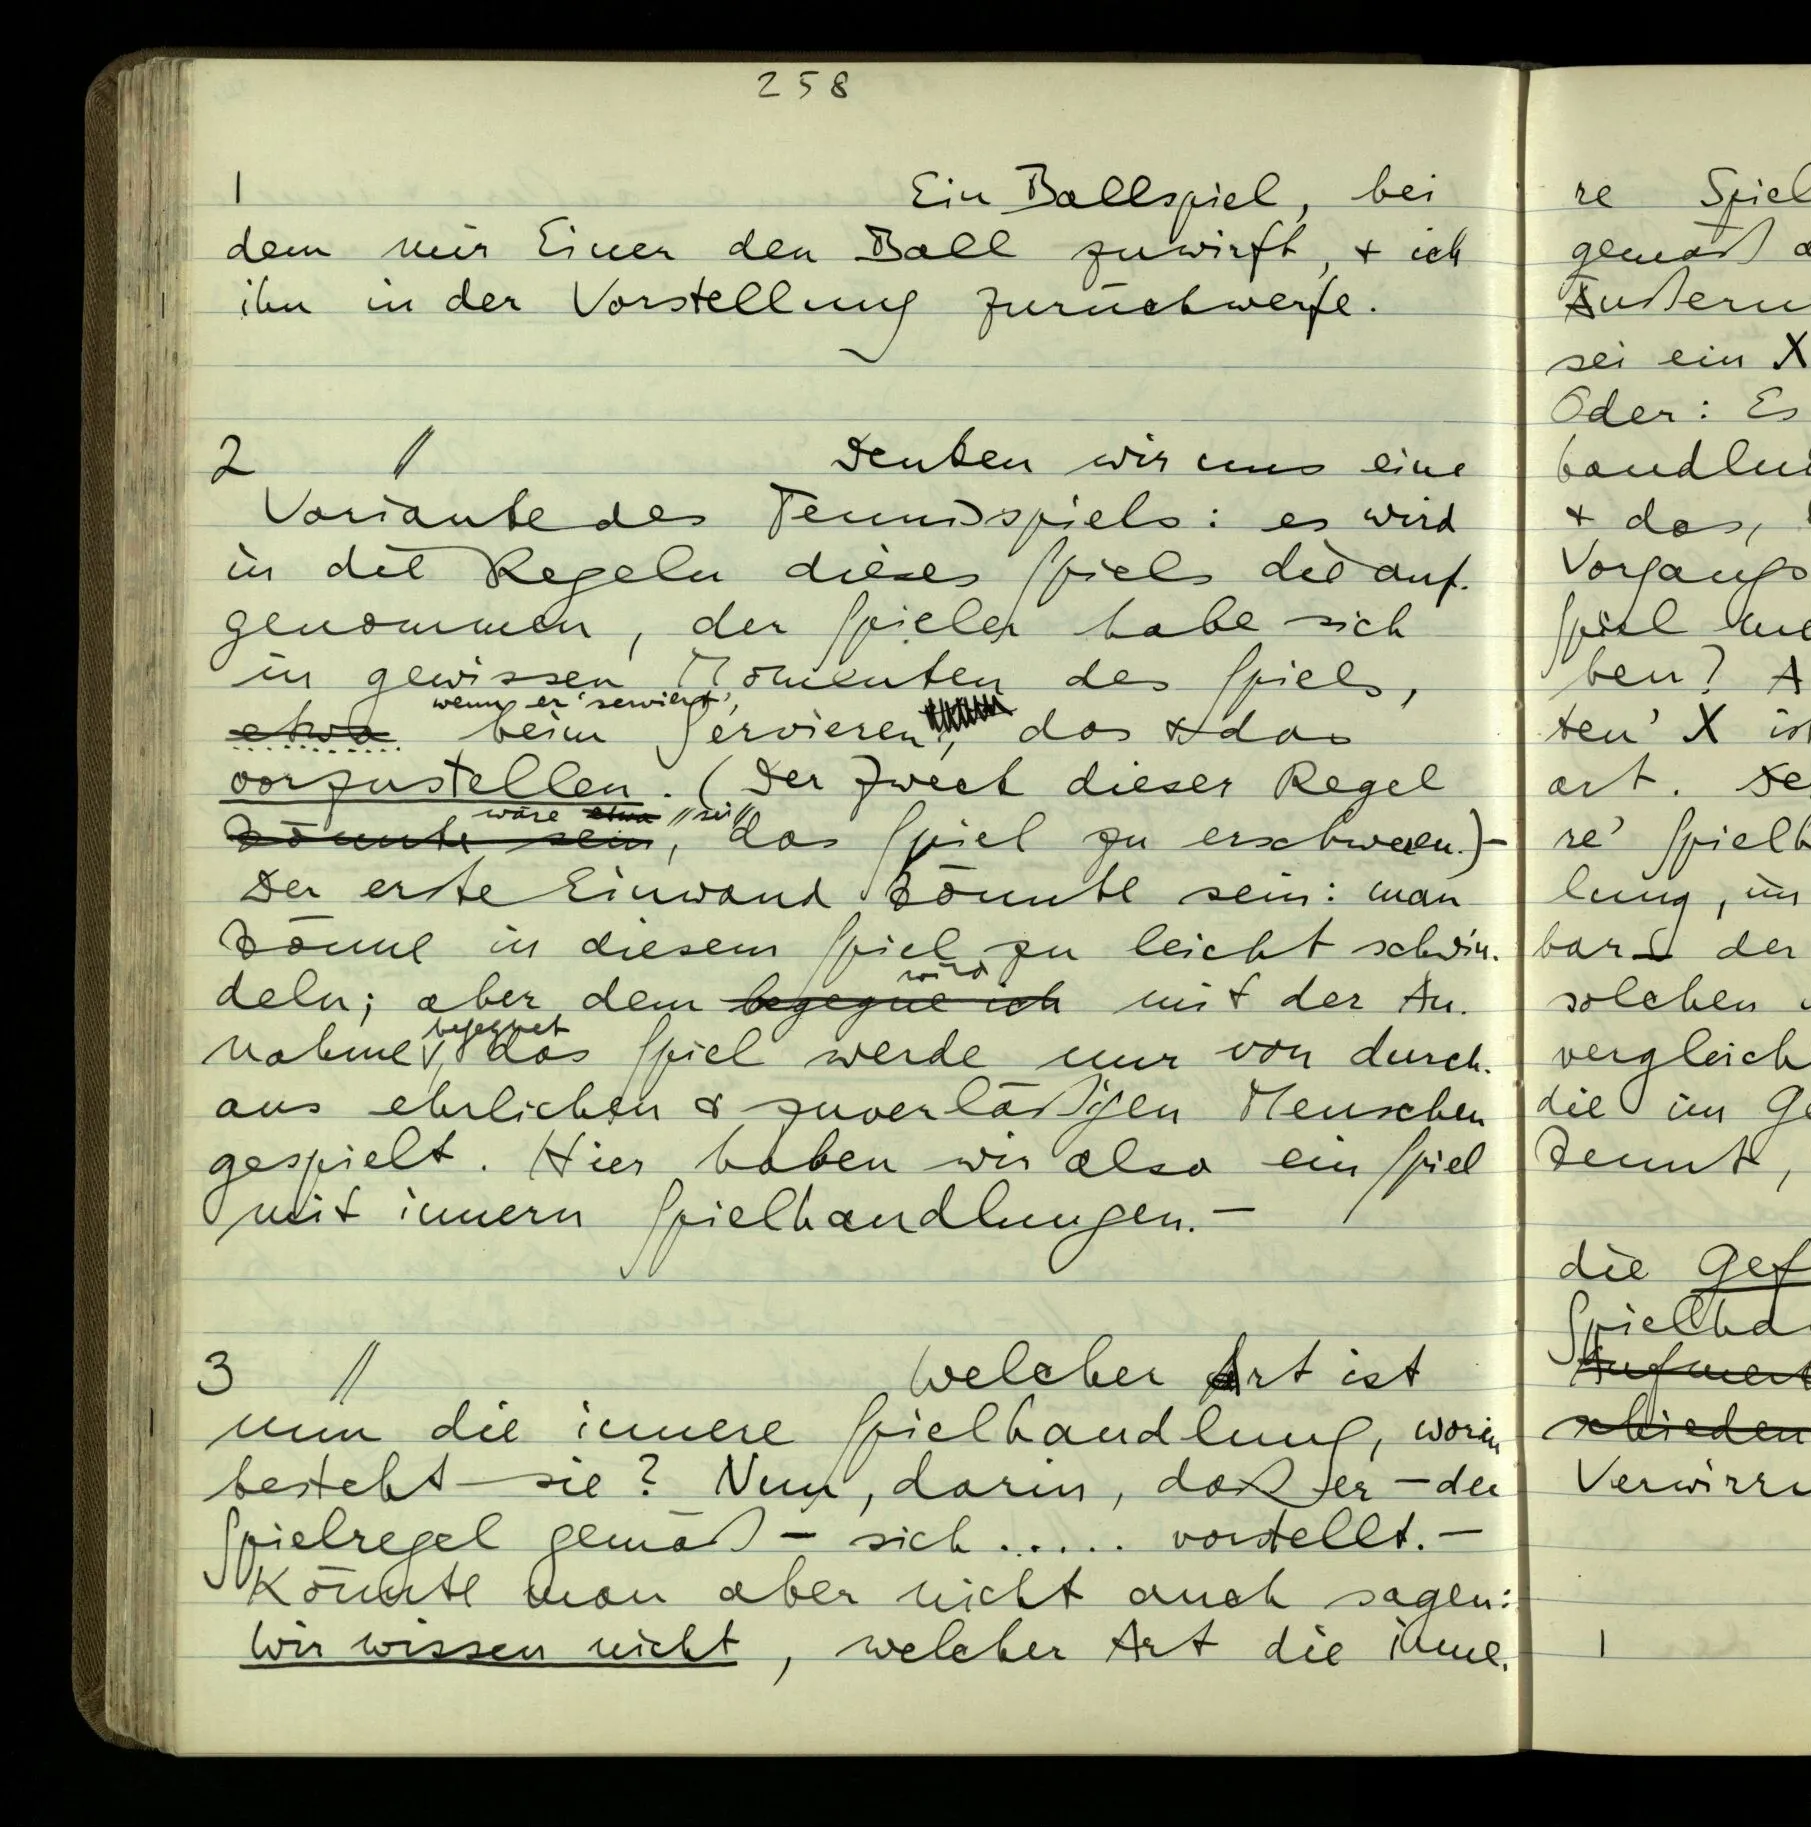 258
1
Ein Ballspiel, bei
dem mir Einer den Ball zuwirft, & ich
ihn in der Vorstellung zurückwerfe.
2 //
Denken wir uns eine
Variante des Tennisspiels: es wird
in die Regeln dieses Spiels die auf-
genommen, der Spieler habe sich
in gewissen Momenten des Spiels,
wenn er 'serviert',
etwa beim Servieren, das & das
vorzustellen. (Der Zweck dieser Regel
wäre etwa //sei//
könnte sein, das Spiel zu erschweren.) –
Der erste Einwand könnte sein: man
könne in diesem Spiel zu leicht schwin-
wird
deln; aber dem begegne ich mit der An-
begegnet
nahme, das Spiel werde nur von durch-
aus ehrlichen & zuverläßigen Menschen
gespielt. Hier haben wir also ein Spiel
mit innern Spielhandlungen. –
3 //
Welcher Art ist
nun die innere Spielhandlung, worin
besteht sie? Nun, darin, daß er – der
Spielregel gemäß – sich ..... vorstellt. –
Könnte man aber nicht auch sagen:
Wir wissen nicht, welcher Art die inne-
re Spiel
gemäß
Äußern
sei ein X
Oder: Es
handlu
& das,
Vorgangs
Spiel
ben? A
ten' X ist
art. De
re' Spielh
lung, im
bar der
solchen
vergleich
die im Ge
kennt,
die Gef
Spielha
Aufmerk
schieden
Verwirru
1